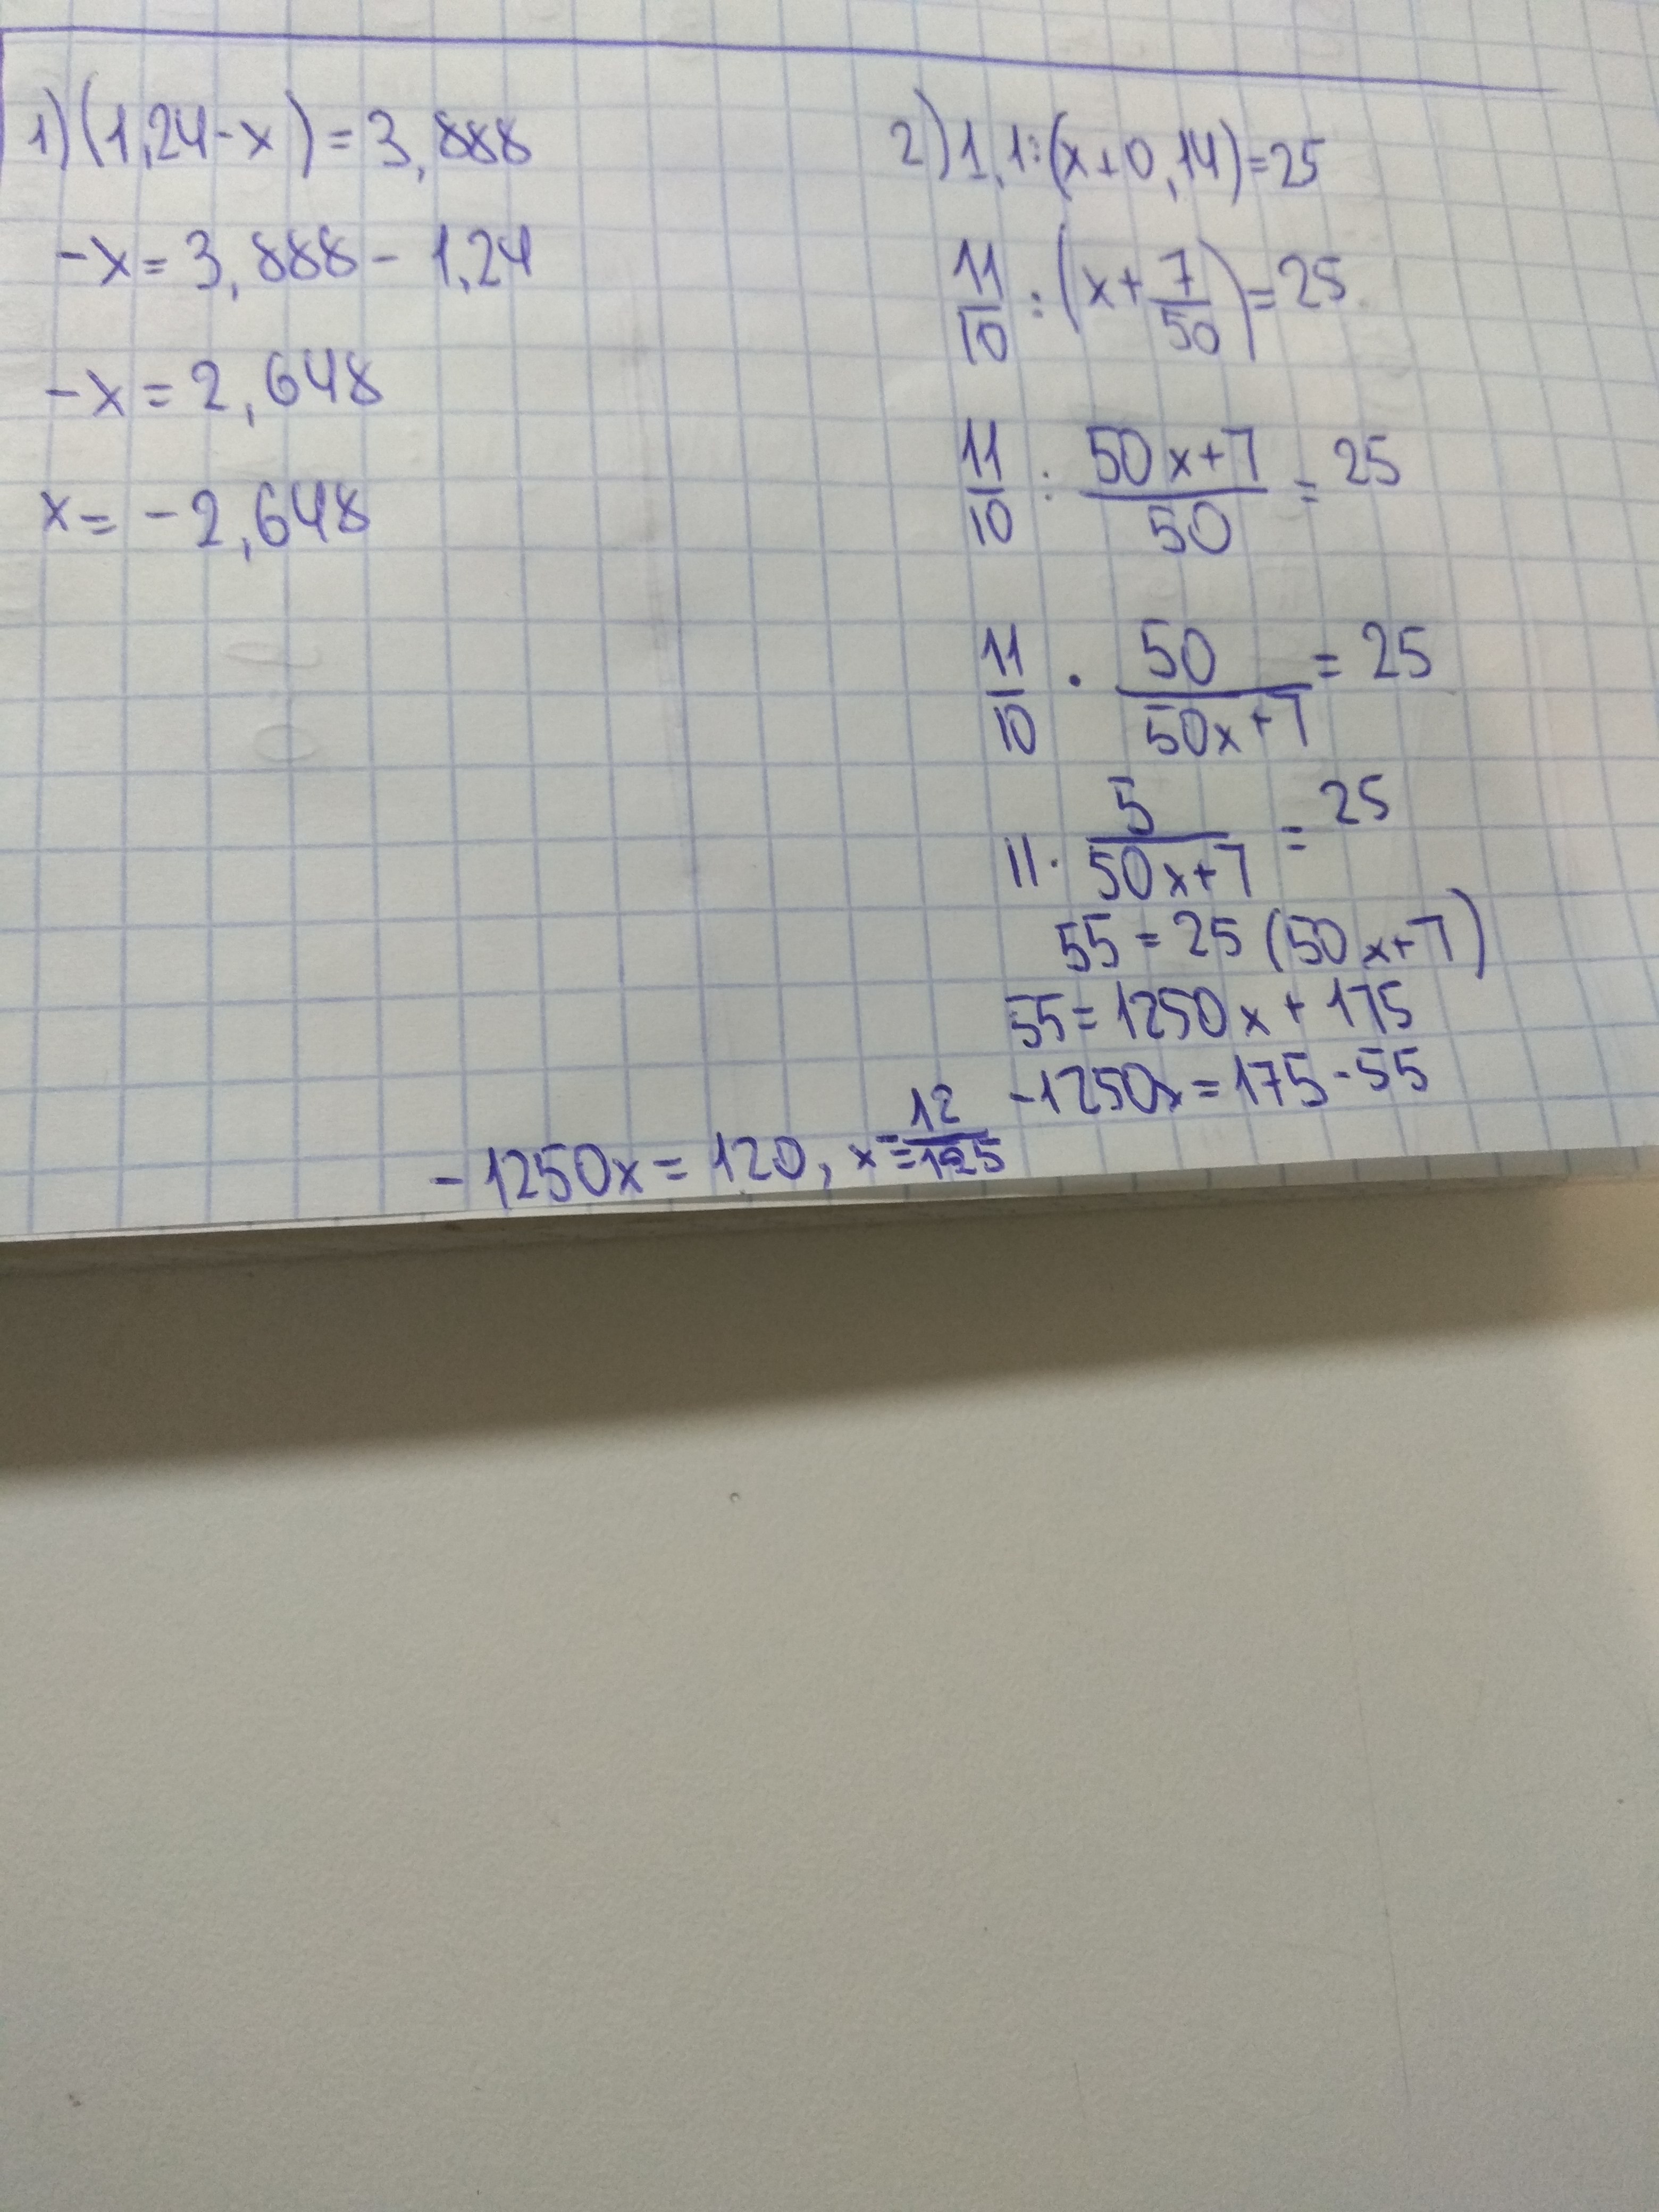 1) (1,24-x) = 3,888
-x = 3,888 - 1,24
-x = 2,648
x = -2,648
2) 1,1:(x+0,14)=25
11/10 : (x + 7/50) = 25
11/10 : (50x+7)/50 = 25
11/10 · 50/(50x+7) = 25
11 · 5/(50x+7) = 25
55 = 25 (50x+7)
55 = 1250x + 175
-1250x = 175 - 55
-1250x = 120, x = 12/125